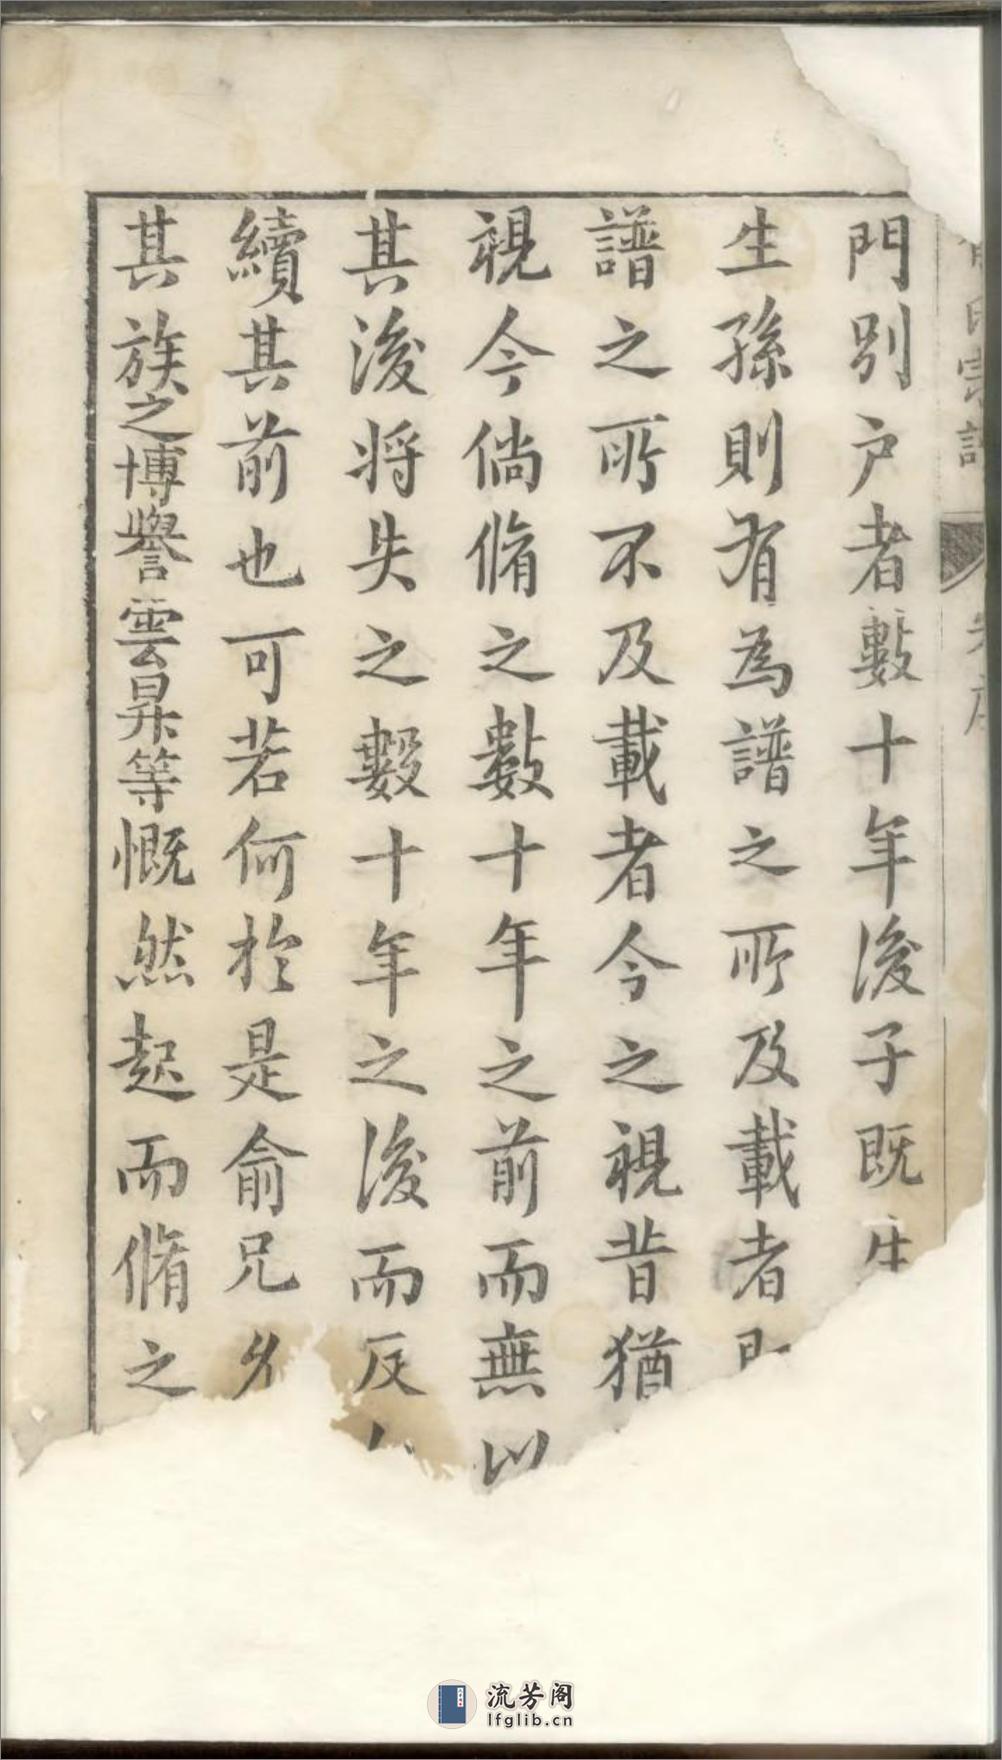 氏宗譜
門别户者數十年後子既生
生孫則有為譜之所及載者即
譜之所不及載者今之視昔猶
視今倘脩之數十年之前而無以
其後将失之數十年之後而反
續其前也可若何於是俞兄
其族之博譽雲昇等慨然起而脩之
流芳阁
lfglib.cn